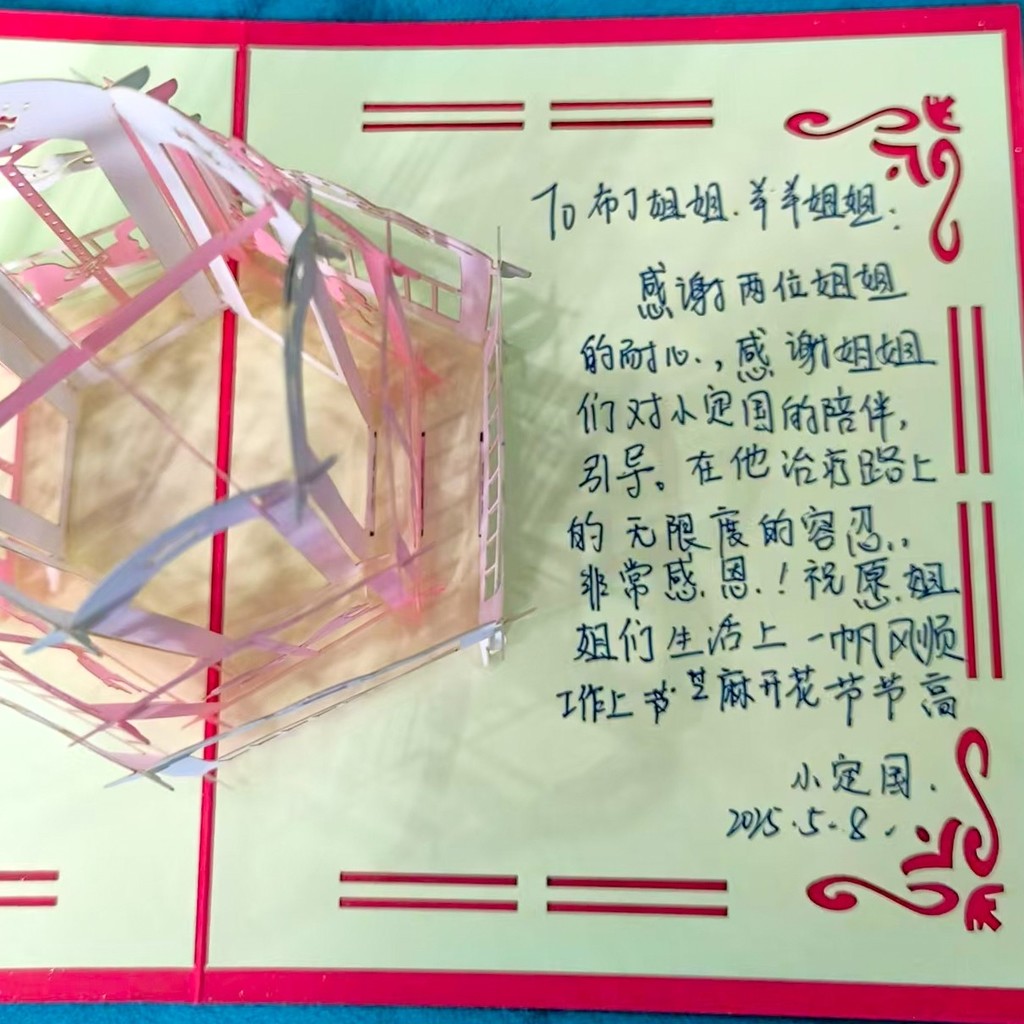 To 布丁姐姐.羊羊姐姐.
感谢两位姐姐
的耐心.,感谢姐姐
们对小定国的陪伴,
引导。在他治疗路上
的无限度的容忍..
非常感恩.!祝愿.姐
姐们生活上一帆风顺
工作上芝麻开花节节高
小定国.
2025.5.8.